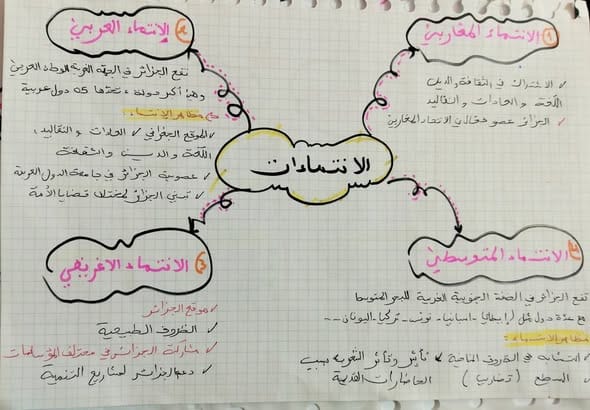 الانتماءات
① الانتماء المغاربي
✓ الاشتراك في الثقافة والدين
اللغة والعادات والتقاليد
✓ الجزائر عضو فعال في الاتحاد المغاربي
② الانتماء العربي
تقع الجزائر في الجهة الغربية للوطن العربي
وهي أكبر دولة تحدها 05 دول عربية
مظاهر الانتماء:
✓ الموقع الجغرافي ✓ العادات والتقاليد،
اللغة والدين والثقافة
✓ عضوية الجزائر في جامعة الدول العربية
✓ تبني الجزائر لمختلف قضايا الأمة
③ الانتماء الافريقي
✓ موقع الجزائر
✓ الظروف الطبيعية
✓ مشاركة الجزائر في مختلف المؤسسات
✓ دعم الجزائر لمشاريع التنمية
الانتماء المتوسطي
تقع الجزائر في الضفة الجنوبية الغربية للبحر المتوسط
مع عدة دول مثل (إيطاليا - اسبانيا - تونس - تركيا - اليونان ---
مظاهر الانتماء:
✓ التشابه في الظروف المناخية ✓ تأثير وتأثر الشعوب بسبب
السطح (تضاريس) الحضارات القديمة